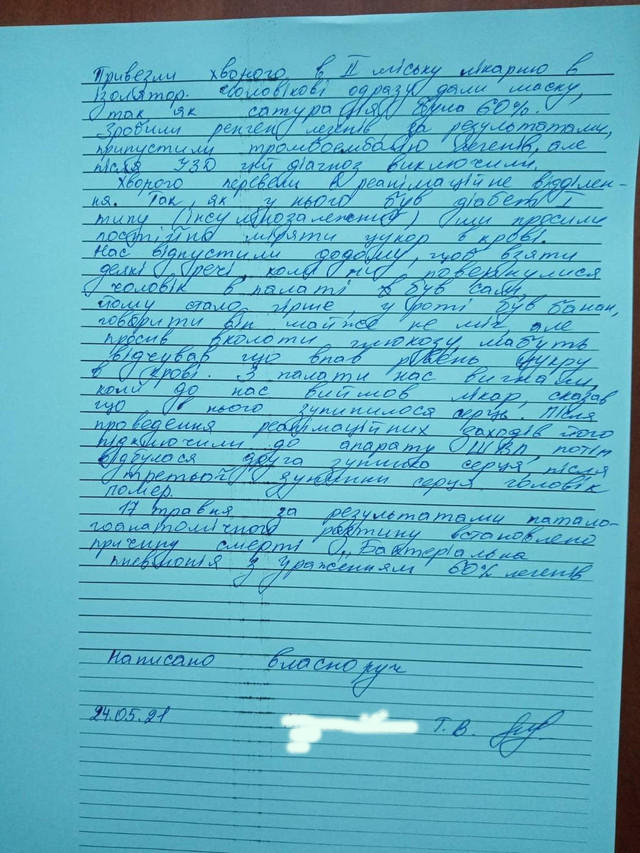 Привезли хворого в II міську лікарню в
ізолятор. Чоловікові одразу дали маску,
так як сатурація була 60%.
Зробили ренген легенів за результатами,
припустили тромбоемболію легенів, але
після УЗД цей діагноз виключили.
Хворого перевели в реанімаційне відділен-
ня. Так, як у нього був діабет I
типу (інсулінозалежний) ми просили
постійно міряти цукор в крові.
Нас відпустили додому, щоб взяти
деякі речі, коли ми повернулися
чоловік в палаті був сам,
йому стало гірше, у роті був банан,
говорити він майже не міг, але
просив вколоти глюкозу, мабуть
відчував що впав рівень цукру
в крові. З палати нас вигнали,
коли до нас вийшов лікар, сказав
що у нього зупинилося серце. Після
проведення реанімаційних заходів його
підключили до апарату ШВЛ, потім
відбулася друга зупинка серця, після
третьої зупинки серця чоловік
помер.
17 травня за результатами патало-
гоанатомічного розтину встановлено
причину смерті „Бактеріальна
пневмонія з ураженням 60% легенів
Написано власноруч
24.05.21
Т. В.